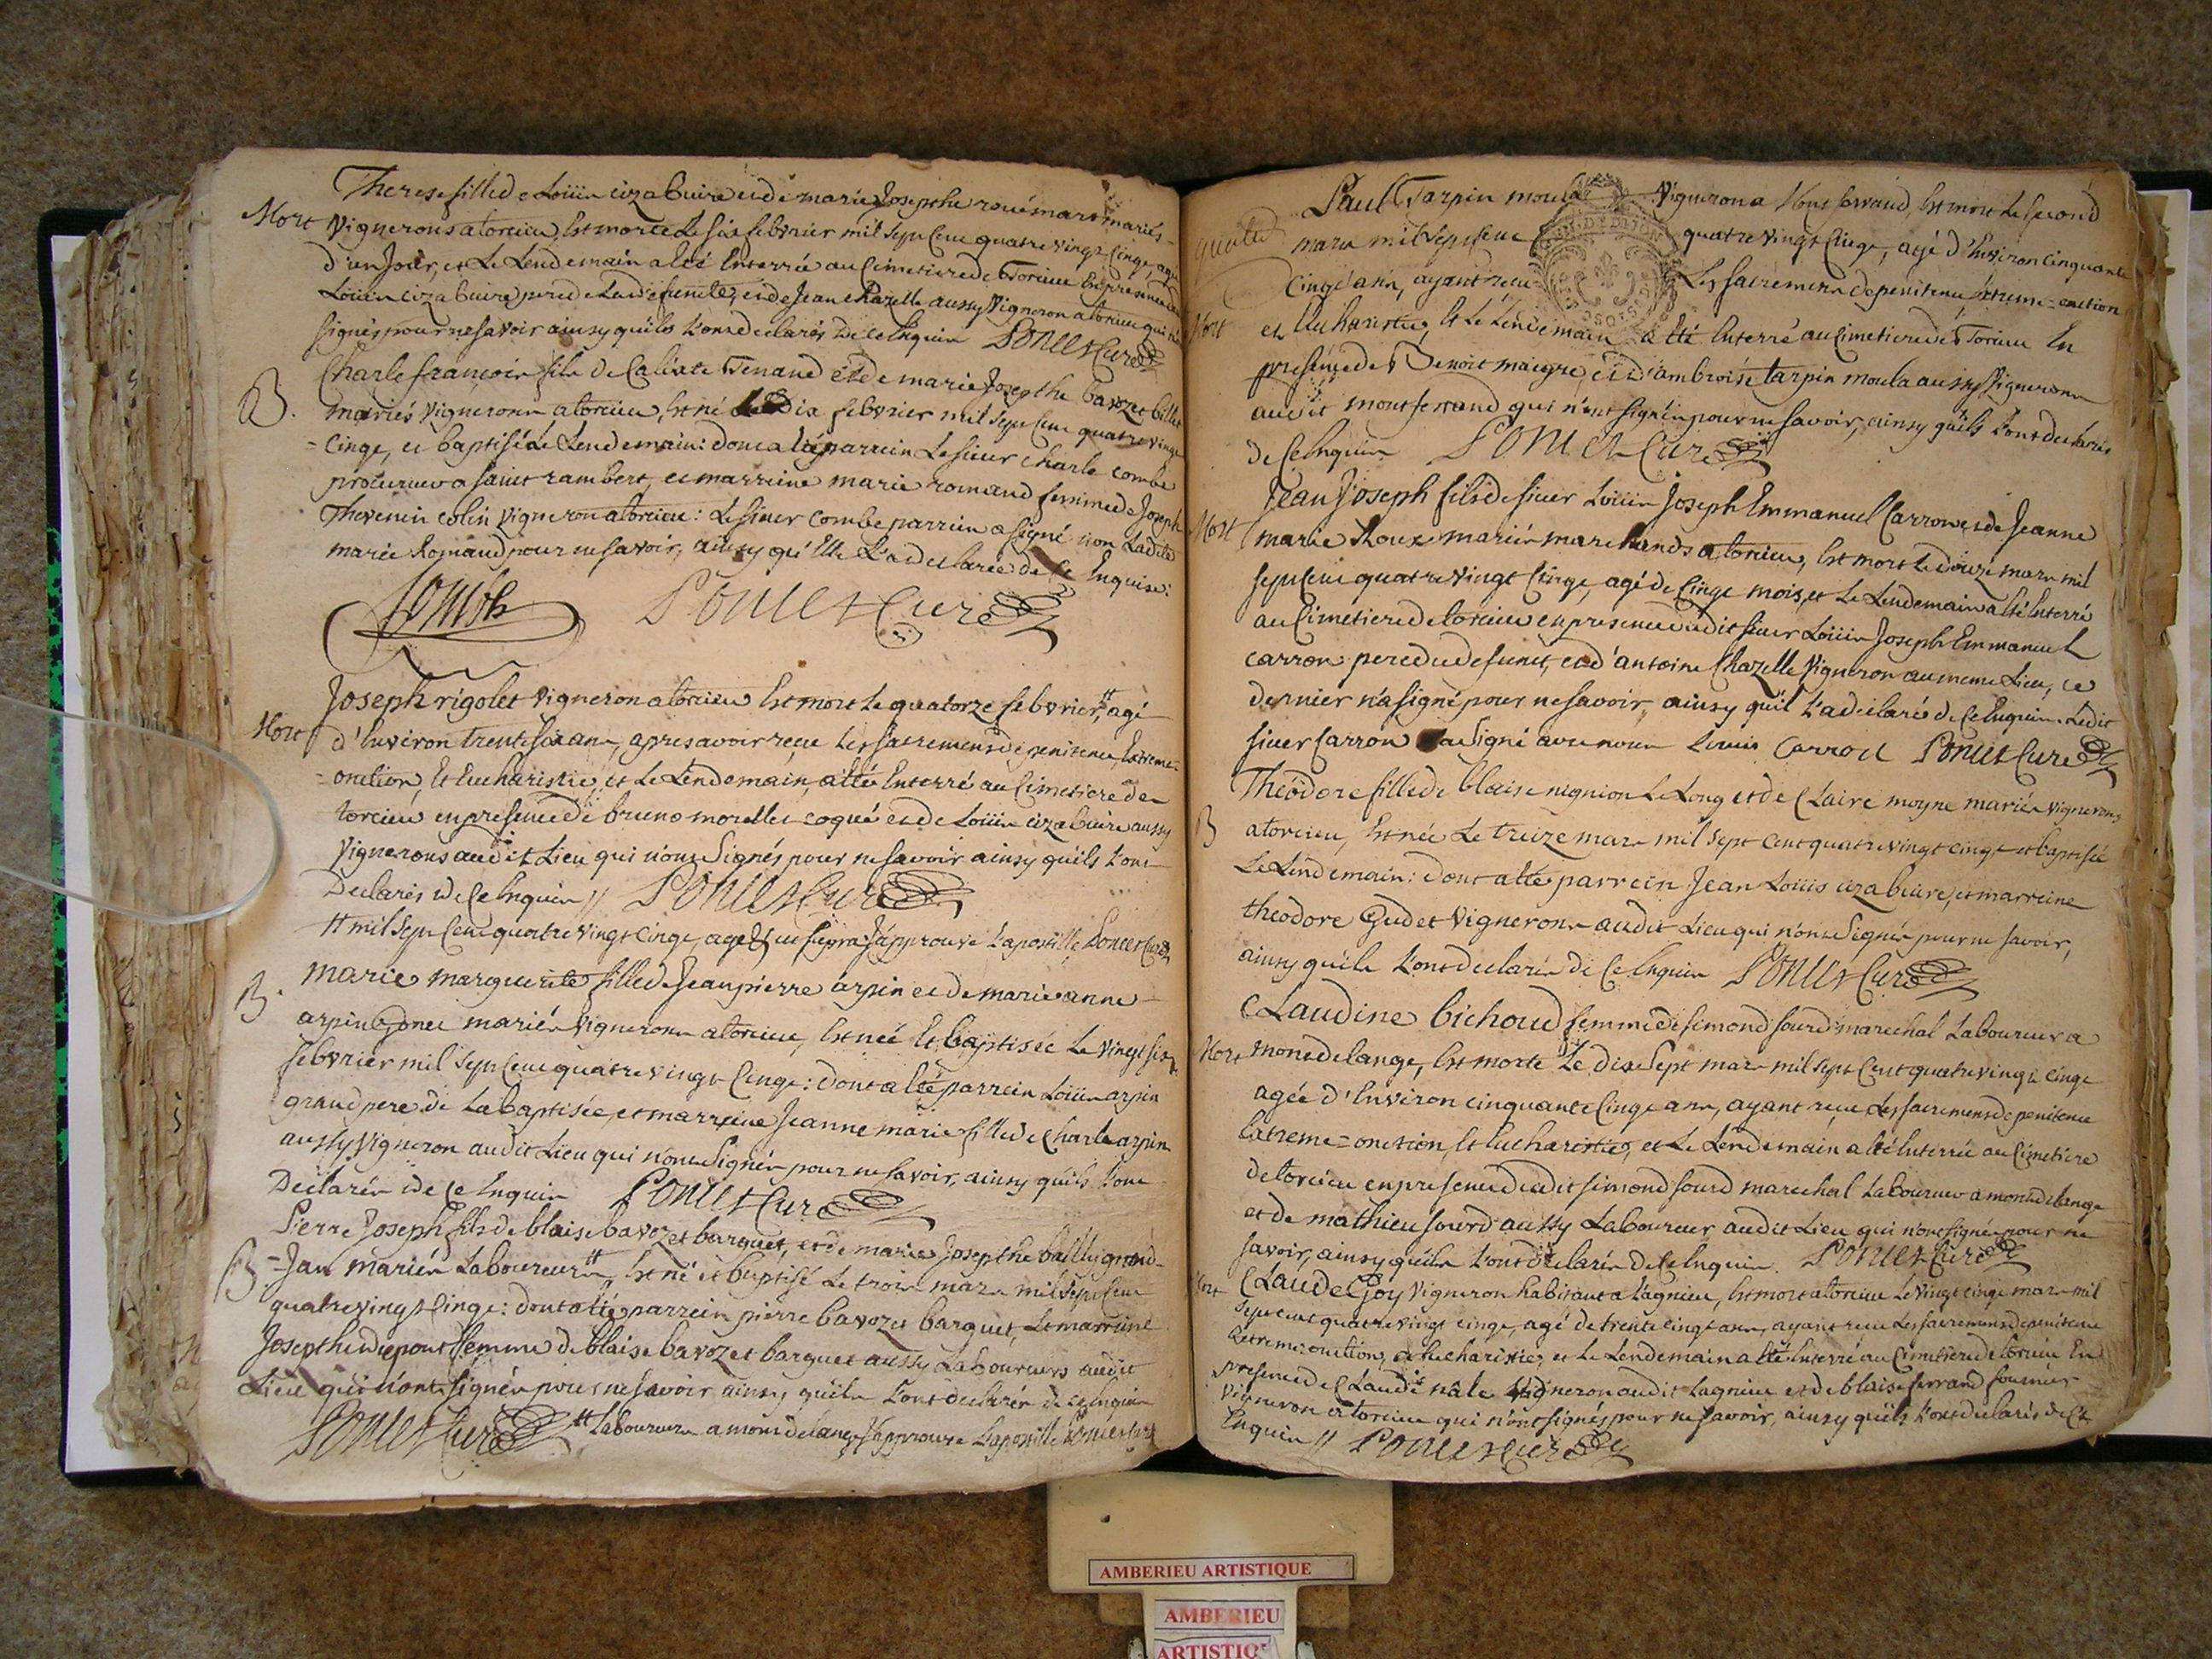 Therese fille de Loüis cizabuire et de marie Josepthe mariés
Mort vignerons a torcieu, Est morte Le six febvrier mil sept Cent quatre vingt Cinqt, agée
d'un Jour, et Le Lendemain a Eté Enterrée au Cimetiere de Torcieu En presence de
Loüis cizabuire pere de La defunte, et de Jean chazelle aussy vigneron a torcieu qui n'ont
signés pour ne savoir ainsy qu'ils L'ont declarés de ce Enquis Poncet Curé
Charle françois fils de Calixte Tenand et de marie Josepthe bavozet billet
B. mariés vignerons a torcieu, Est né Le Dix febvrier mil sept Cent quatre vingt
= Cinqt, et baptisé Le Lendemain: dont a Eté parrein Le sieur charle combe
procureur a saint rambert, et marreine marie romand femme de Joseph
Thevenin colin vigneron a torcieu: Le sieur Combe parrein a signé non Ladite
marie Romand pour ne savoir, ainsy qu'Elle L'a declarée de Ce Enquise:
Combe Poncet Curé
Joseph rigolet vigneron a torcieu Est mort Le quatorze febvrier, ++ agé
Mort d'Environ trente six ans, apres avoir reçu Les sacremens de penitence, Extreme=
= onction, Et Eucharistie, et Le Lendemain, a Eté Enterré au Cimetiere de
torcieu en presence de bruno morellet coqué et de Loüis cizabuire aussy
vignerons audit Lieu qui n'ont Signés pour ne savoir ainsy qu'ils L'ont
Declarés de Ce Enquis // Poncet Curé
++ mil sept Cent quatre vingt Cinqt, agé &c ut supra J'approuve L'apostille Poncet Curé
marie marguerite fille de Jean pierre arpin et de marie anne
B. arpin mariés vignerons a torcieu, Est née Et baptisée Le vingt six
febvrier mil sept Cent quatre vingt Cinqt: dont a Eté parrein Loüis arpin
grand pere de La baptisée, et marreine Jeanne marie fille de Charle arpin
aussy vigneron audit Lieu qui n'ont Signés pour ne savoir, ainsy qu'ils L'ont
Declarés de Ce Enquis Poncet Curé
Pierre Joseph fils de blaise bavozet barquet, et de marie Josepthe bailly grand-
B = Jan mariés Laboureurs ++, Est né et baptisé Le trois mars mil sept Cent
quatre vingt Cinqt: dont a Eté parrein pierre bavozet barquet, Et marreine
Josepthe dupont femme de blaise bavozet barquet aussy Laboureurs audit
Lieu qui n'ont signés pour ne savoir ainsy qu'ils L'ont declarés de ce Enquis
Poncet Curé ++ Laboureurs a mont de lange J'approuve L'apostille Poncet Curé
Paul Tarpin moula vigneron a Montferrand, Est mort Le second
mars mil sept Cent quatre vingt Cinqt, agé d'Environ Cinquante
Cinqt ans, ayant reçu Les sacremens de penitence, Extreme=onction
Mort et Eucharistie, Et Le Lendemain a Eté Enterré au Cimetiere de Torcieu En
presence de Benoit maigre, et d'ambroise tarpin moula aussy vignerons
audit montferrand qui n'ont signés pour ne savoir, ainsy qu'ils L'ont declarés
de Ce Enquis Poncet Curé
Jean Joseph fils de sieur Loüis Joseph Emmanuel Carron et de Jeanne
Mort marie Roux mariés marchands a torcieu, Est mort Le douze mars mil
sept Cent quatre vingt Cinqt, agé de Cinqt mois, et Le Lendemain a Eté Enterré
au Cimetiere de torcieu en presence dudit sieur Loüis Joseph Emmanuel
Carron pere du defunt, et d'antoine Chazelle vigneron au meme Lieu, ce
dernier n'a signé pour ne savoir, ainsy qu'il L'a declaré de Ce Enquis. Ledit
sieur Carron a Signé avec nous Louis Carron Poncet Curé
Théodore fille de blaise mignion Le Long et de Claire moyne mariés vignerons
B a torcieu, Est née Le treize mars mil sept Cent quatre vingt cinqt et baptisée
Le Lendemain: dont a Eté parrein Jean Loüis cizabuire, et marreine
théodore Gudet vignerons audit Lieu qui n'ont Signés pour ne savoir,
ainsy qu'ils L'ont declarés de Ce Enquis Poncet Curé
Claudine bichoud femme de simond sourd marechal Laboureur a
Mort mont de lange, Est morte Le dix Sept mars mil sept Cent quatre vingt Cinqt
agée d'Environ cinquante Cinqt ans, ayant reçu Les sacremens de penitence
Extreme=onction, Et Eucharistie, et Le Lendemain a Eté Enterrée au Cimetiere
de torcieu en presence dudit simond sourd marechal Laboureur a mont de lange
et de mathieu sourd aussy Laboureur audit Lieu qui n'ont signés pour ne
savoir, ainsy qu'ils L'ont declarés de Ce Enquis. Poncet Curé
Mort Claude Goy vigneron habitant a Lagnieu, Est mort a torcieu Le vingt cinqt mars mil
sept cent quatre vingt cinqt, agé de trente cinqt ans, ayant reçu Les sacremens de penitence
Extreme onction, et Eucharistie, et Le Lendemain a Eté Enterré au Cimetiere de torcieu En
presence de Claude nale vigneron audit Lagnieu et de blaise ferrand fournier
vigneron a torcieu qui n'ont signés pour ne savoir, ainsy qu'ils L'ont declarés de Ce
Enquis // Poncet Curé
AMBERIEU ARTISTIQUE
AMBERIEU
ARTISTIQ